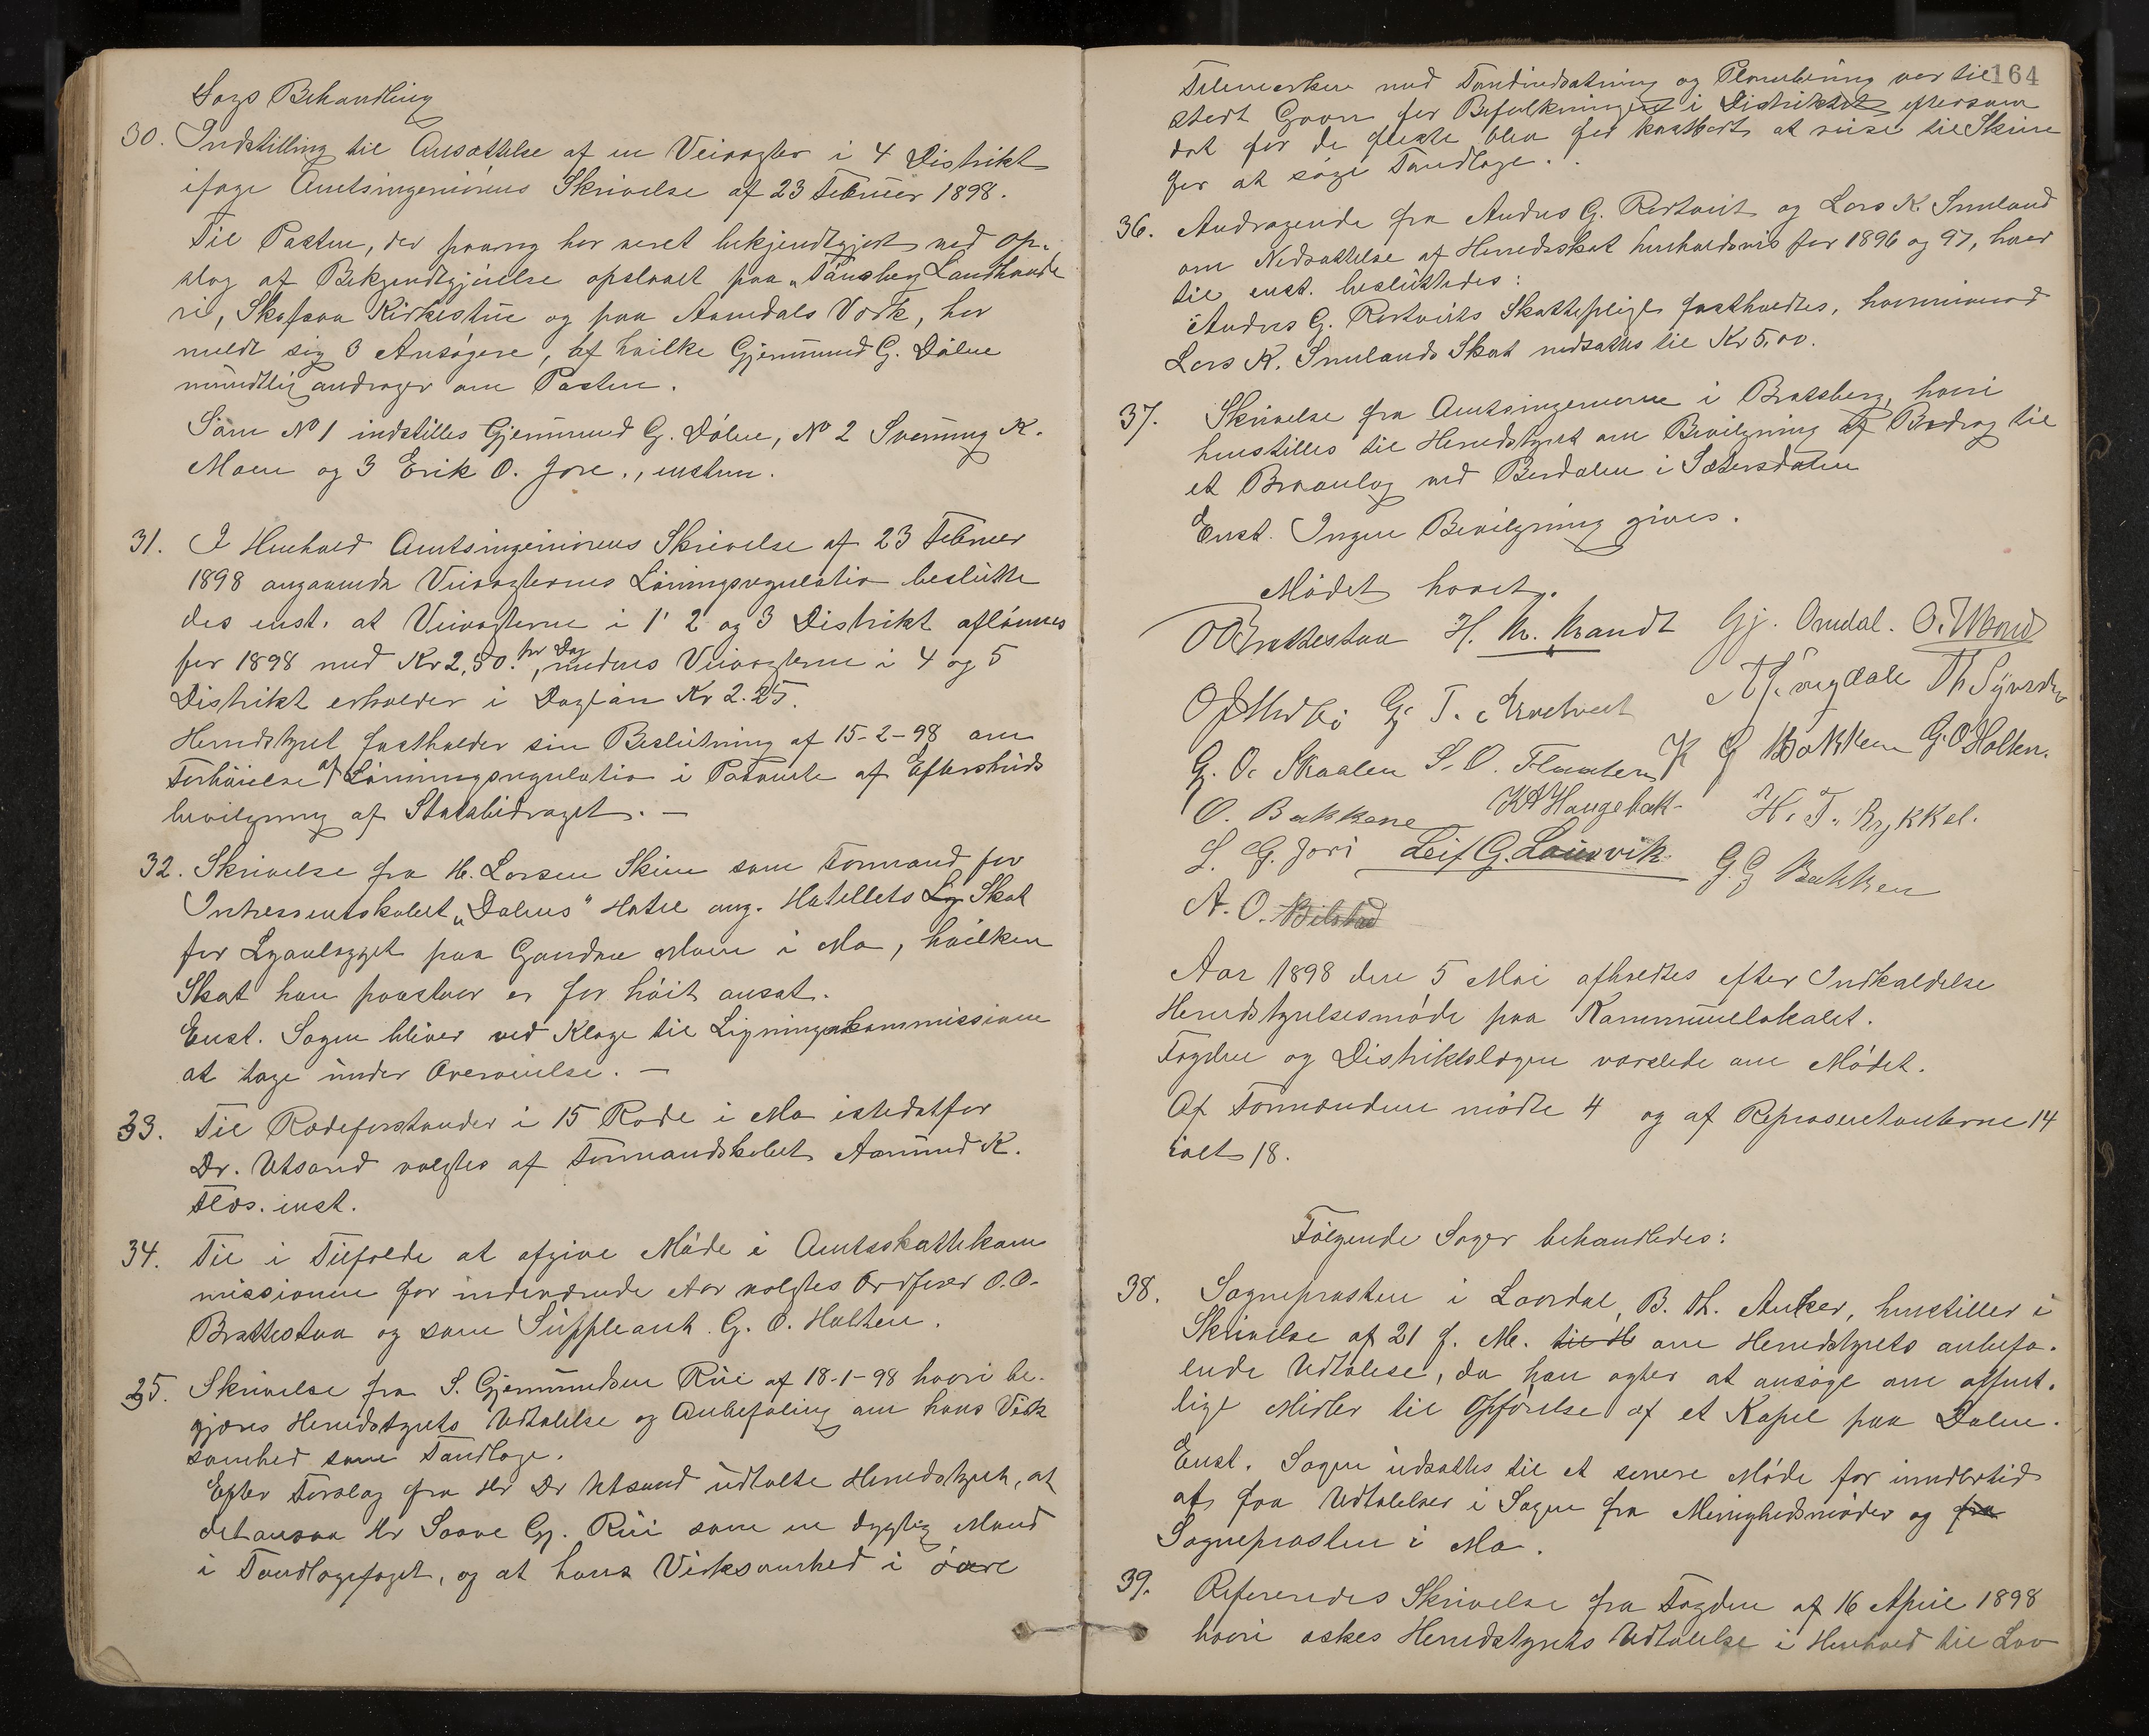 Sags Behandling
30. Indstilling til Ansættelse af en Veivogter i 4 Distrikt
ifølge Amtsingeniørens Skrivelse af 23 Februar 1898.
Til Posten, der paany har været bekjendtgjort ved Op-
slag af Bekjendtgjørelse opslaaet paa „Tønsberg Landhande
ri, Skafsaa Kirkestue og paa Aamdals Værk, har
meldt sig 3 Ansøgere, af hvilke Gjermund G. Dalen
mundtlig andrager om Posten.
Som No 1 indstilles Gjermund G. Dalen, No 2 Svenung K.
Moen og 3 Erik O. Jore., enstem.
31. I Henhold Amtsingeniørens Skrivelse af 23 Februar
1898 angaaende Veivogternes Lønningsregulativ beslutte
des enst. at Veivogterne i 1' 2 og 3 Distrikt aflønnes
for 1898 med Kr 2,50. pr Dag, medens Veivogterne i 4 og 5
Distrikt erholder i Dagløn Kr 2.25.
Herredstyret fastholder sin Beslutning af 15-2-98 om
Forhøielse af Lønningsregulativ i Paavente af Efterskuds
bevilgning af Statsbidraget. —
32. Skrivelse fra H. Larsen Skien som Formand for
Interessentskabet „Dalens" Hotel ang. Hotellets Lig Skat
for Lysanlægget paa Gaarden Moen i Mo, hvilken
Skat han paastaar er for høit ansat.
Enst. Sagen bliver ved Klage til Ligningskommissionen
at tage under Overveielse. —
33. Til Rodeforstander i 15 Rode i Mo istedetfor
Dr. Utsond valgtes af Formandskabet Aamund K.
Flos. enst.
34. Til i Tilfælde at afgive Møde i Amtsskattekom
missionen for indeværende Aar valgtes Ordfører O. O.
Brattestaa og som Suppleant G. O. Holten.
35. Skrivelse fra S. Gjermundsen Rui af 18-1-98 hvori be-
gjæres Herredstyrets Udtalelse og Anbefaling om hans Virk
somhed som Tandlæge.
Efter Forslag fra Hr Dr Utsond udtalte Herredstyret, at
det ansaa Hr Saave Gj. Rui som en dygtig Mand
i Tandlægefaget, og at hans Virksomhed i øvre
164
Telemarken med Tandindsætning og Plombering var til
stort Gavn for Befolkningen i Distriktet eftersom
det for de fleste blev for kostbart at reise til Skien
for at søge Tandlæge.
36. Andragende fra Anders G. Rostveit og Lars K. Smeland
om Nedsættelse af Herredsskat henholdsvis for 1896 og 97, hvor
til enst. besluttedes:
Anders G. Rostveits Skattepligt fastholdtes, hvorimod
Lars K. Smelands Skat nedsættes til Kr 5,00.
37. Skrivelse fra Amtsingeniøren i Bratsberg, hvori
henstilles til Herredstyret om Bevilgning af Bidrag til
et Broanlæg ved Berdalen i Sætersdalen
Enst. Ingen Bevilgning gives.
Mødet hævet.
OOBrattestaa H. Kr. Kvandt Gj. Omdal. O. Utsond
G. O. Skaalen S. O. Flaaten K G Bakken G. O Holten.
O. Bakkene KAHaugebak H. T. Rykkel.
S. G. Jore Leif G. Laurvik G. G Bakken
A. O. Bilstad
Aar 1898 den 5 Mai afholdtes efter Indkaldelse
Herredstyrelsesmøde paa Kommunelokalet.
Fogden og Distriktslægen varslede om Mødet.
Af Formændene mødte 4 og af Repræsentanterne 14
ialt 18.
Følgende Sager behandledes:
38. Sognepresten i Laardal, B. Th. Anker, henstiller i
Skrivelse af 21 f. M. til H om Herredstyrets anbefa-
lende Udtalelse, da han agter at ansøge om offent-
lige Midler til Opførelse af et Kapel paa Dalen.
Enst. Sagen udsættes til et senere Møde for imidlertid
at faa Udtalelser i Sagen fra Menighedsmøder og fra
Sognepresten i Mo.
39. Refereredes Skrivelse fra Fogden af 16 April 1898
hvori æskes Herredstyrets Udtalelse i Henhold til Lov